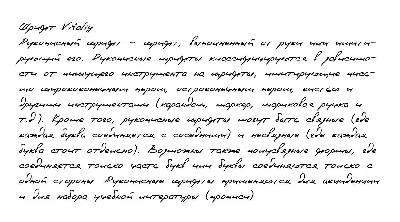 Шрифт Vitaliy
Рукописный шрифт – шрифт, выполненный от руки или имити-
рующий его. Рукописные шрифты классифицируются в зависимо-
сти от пишущего инструмента на шрифты, имитирующие пись-
мо ширококонечным пером, остроконечным пером, кистью и
другими инструментами (карандаш, маркер, шариковая ручка и
т.д.). Кроме того, рукописные шрифты могут быть связные (где
каждая буква соединяется с соседними) и несвязные (где каждая
буква стоит отдельно). Возможны также полусвязные формы, где
соединяется только часть букв или буквы соединяются только с
одной стороны. Рукописные шрифты применяются для акциденции
и для набора учебной литературы (прописи)